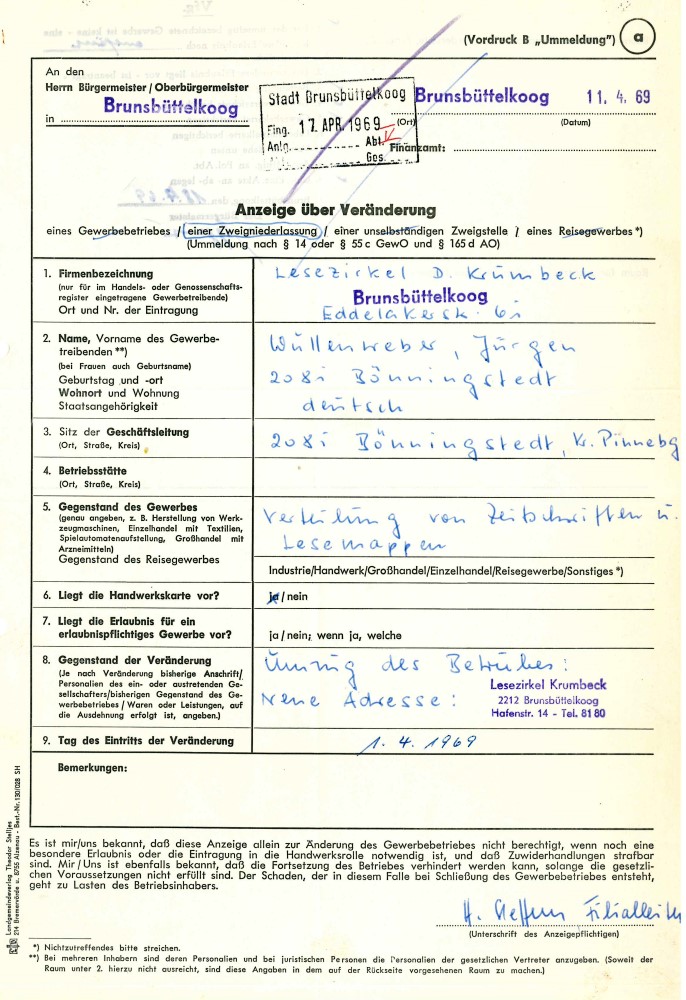 (Vordruck B „Ummeldung") a
An den
Herrn Bürgermeister/Oberbürgermeister
in Brunsbüttelkoog
Stadt Brunsbüttelkoog
Eing. 17. APR. 1969
Anlg. Abt.
Ges.
Brunsbüttelkoog 11. 4. 69
(Ort) (Datum)
Finanzamt:
Anzeige über Veränderung
eines Gewerbebetriebes / einer Zweigniederlassung / einer unselbständigen Zweigstelle / eines Reisegewerbes*)
(Ummeldung nach § 14 oder § 55c GewO und § 165d AO)
1. Firmenbezeichnung
(nur für im Handels- oder Genossenschafts-
register eingetragene Gewerbetreibende)
Ort und Nr. der Eintragung
Lesezirkel D. Krumbeck
Brunsbüttelkoog
Eddelakerstr. 61
2. Name, Vorname des Gewerbe-
treibenden **)
(bei Frauen auch Geburtsname)
Geburtstag und -ort
Wohnort und Wohnung
Staatsangehörigkeit
Wüllenweber, Jürgen
2081 Bönningstedt
deutsch
3. Sitz der Geschäftsleitung
(Ort, Straße, Kreis)
2081 Bönningstedt, Kr. Pinnebg
4. Betriebsstätte
(Ort, Straße, Kreis)
5. Gegenstand des Gewerbes
(genau angeben, z. B. Herstellung von Werk-
zeugmaschinen, Einzelhandel mit Textilien,
Spielautomatenaufstellung, Großhandel mit
Arzneimitteln)
Gegenstand des Reisegewerbes
Verteilung von Zeitschriften u.
Lesemappen
Industrie/Handwerk/Großhandel/Einzelhandel/Reisegewerbe/Sonstiges *)
6. Liegt die Handwerkskarte vor?
ja / nein
7. Liegt die Erlaubnis für ein
erlaubnispflichtiges Gewerbe vor?
ja / nein; wenn ja, welche
8. Gegenstand der Veränderung
(Je nach Veränderung bisherige Anschrift/
Personalien des ein- oder austretenden Ge-
sellschafters/bisherigen Gegenstand des Ge-
werbebetriebes / Waren oder Leistungen, auf
die Ausdehnung erfolgt ist, angeben.)
Umzug des Betriebes:
Neue Adresse:
Lesezirkel Krumbeck
2212 Brunsbüttelkoog
Hafenstr. 14 - Tel. 81 80
9. Tag des Eintritts der Veränderung
1. 4. 1969
Bemerkungen:
Es ist mir/uns bekannt, daß diese Anzeige allein zur Änderung des Gewerbebetriebes nicht berechtigt, wenn noch eine
besondere Erlaubnis oder die Eintragung in die Handwerksrolle notwendig ist, und daß Zuwiderhandlungen strafbar
sind. Mir/Uns ist ebenfalls bekannt, daß die Fortsetzung des Betriebes verhindert werden kann, solange die gesetzli-
chen Voraussetzungen nicht erfüllt sind. Der Schaden, der in diesem Falle bei Schließung des Gewerbebetriebes entsteht,
geht zu Lasten des Betriebsinhabers.
H. Filialleiter
(Unterschrift des Anzeigepflichtigen)
*) Nichtzutreffendes bitte streichen.
**) Bei mehreren Inhabern sind deren Personalien und bei juristischen Personen die Personalien der gesetzlichen Vertreter anzugeben. (Soweit der
Raum unter 2. hierzu nicht ausreicht, sind diese Angaben in dem auf der Rückseite vorgesehenen Raum zu machen.)
Landgemeindeverlag Theodor Stelljes
214 Bremervörde u. 8755 Alzenau - Best.-Nr. 130/028 SH